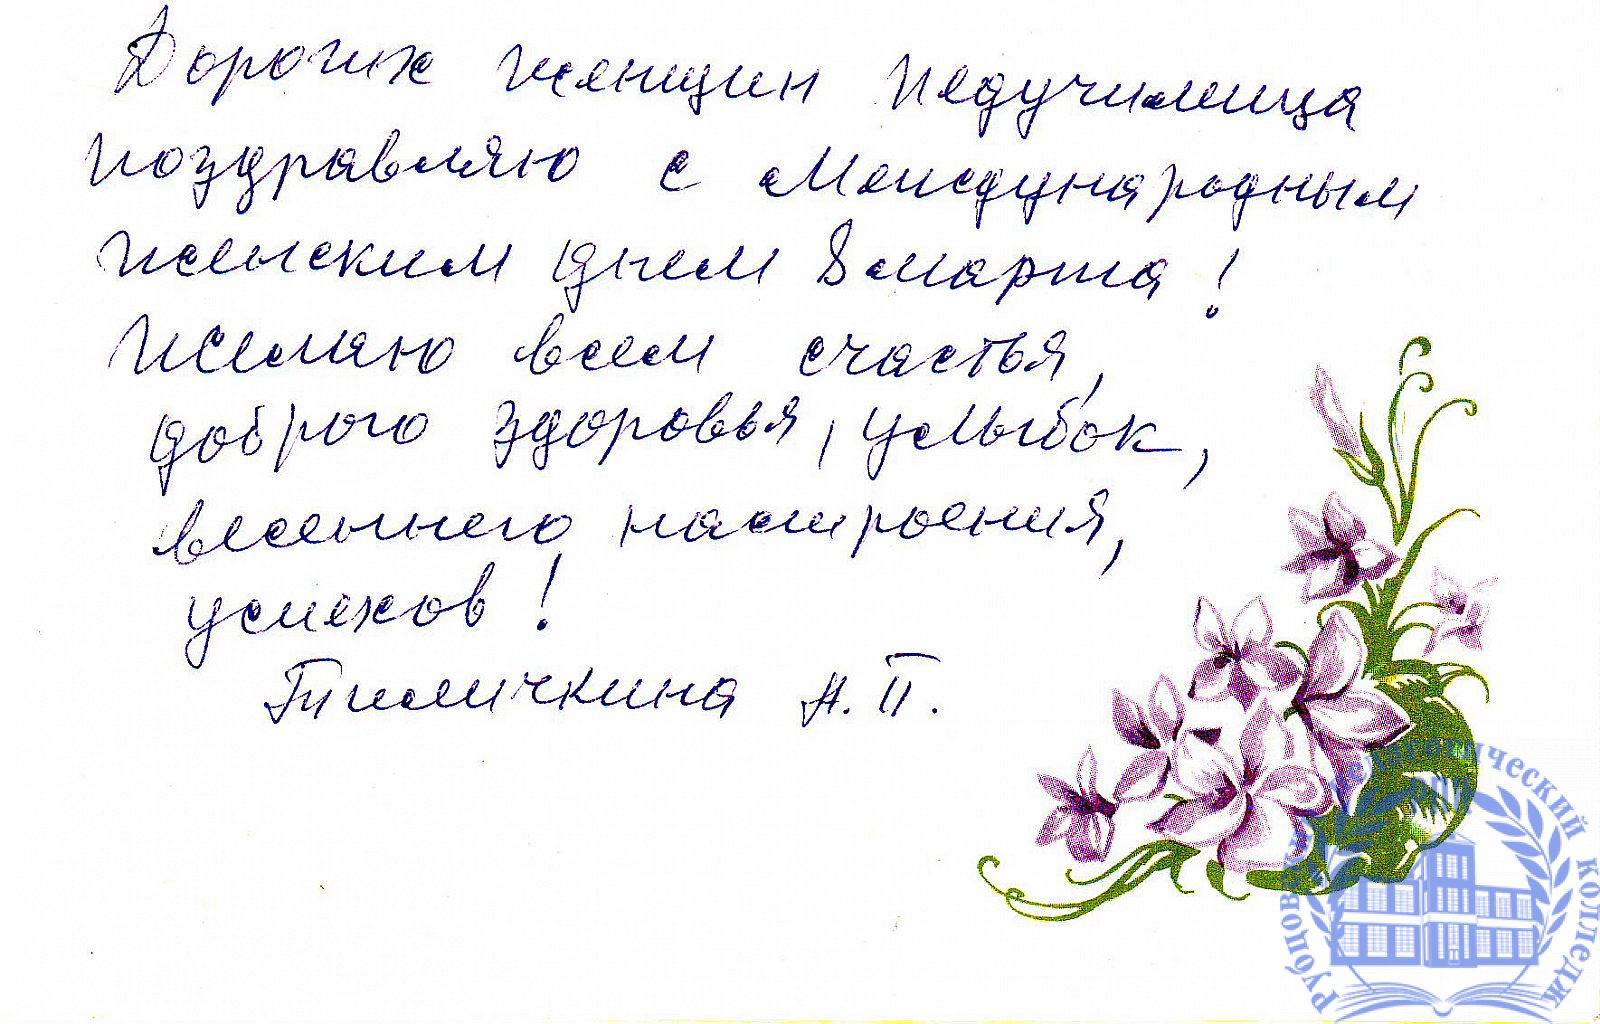 Дорогих женщин педучилища
поздравляю с Международным
женским днем 8 марта!
Желаю всем счастья,
доброго здоровья, улыбок,
весеннего настроения,
успехов!
Тиличкина А.П.
Рубцовский педагогический колледж